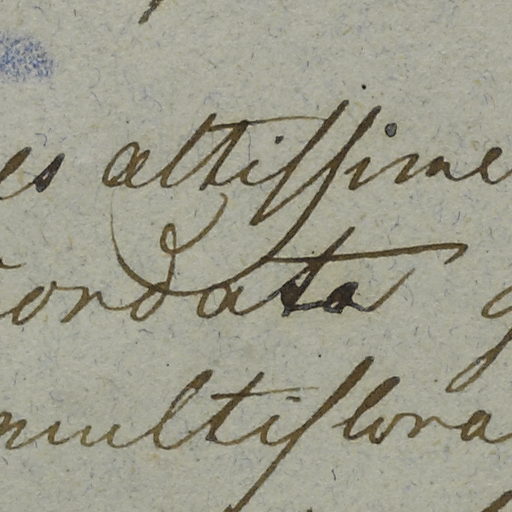 es altissime
cordata
multiflora